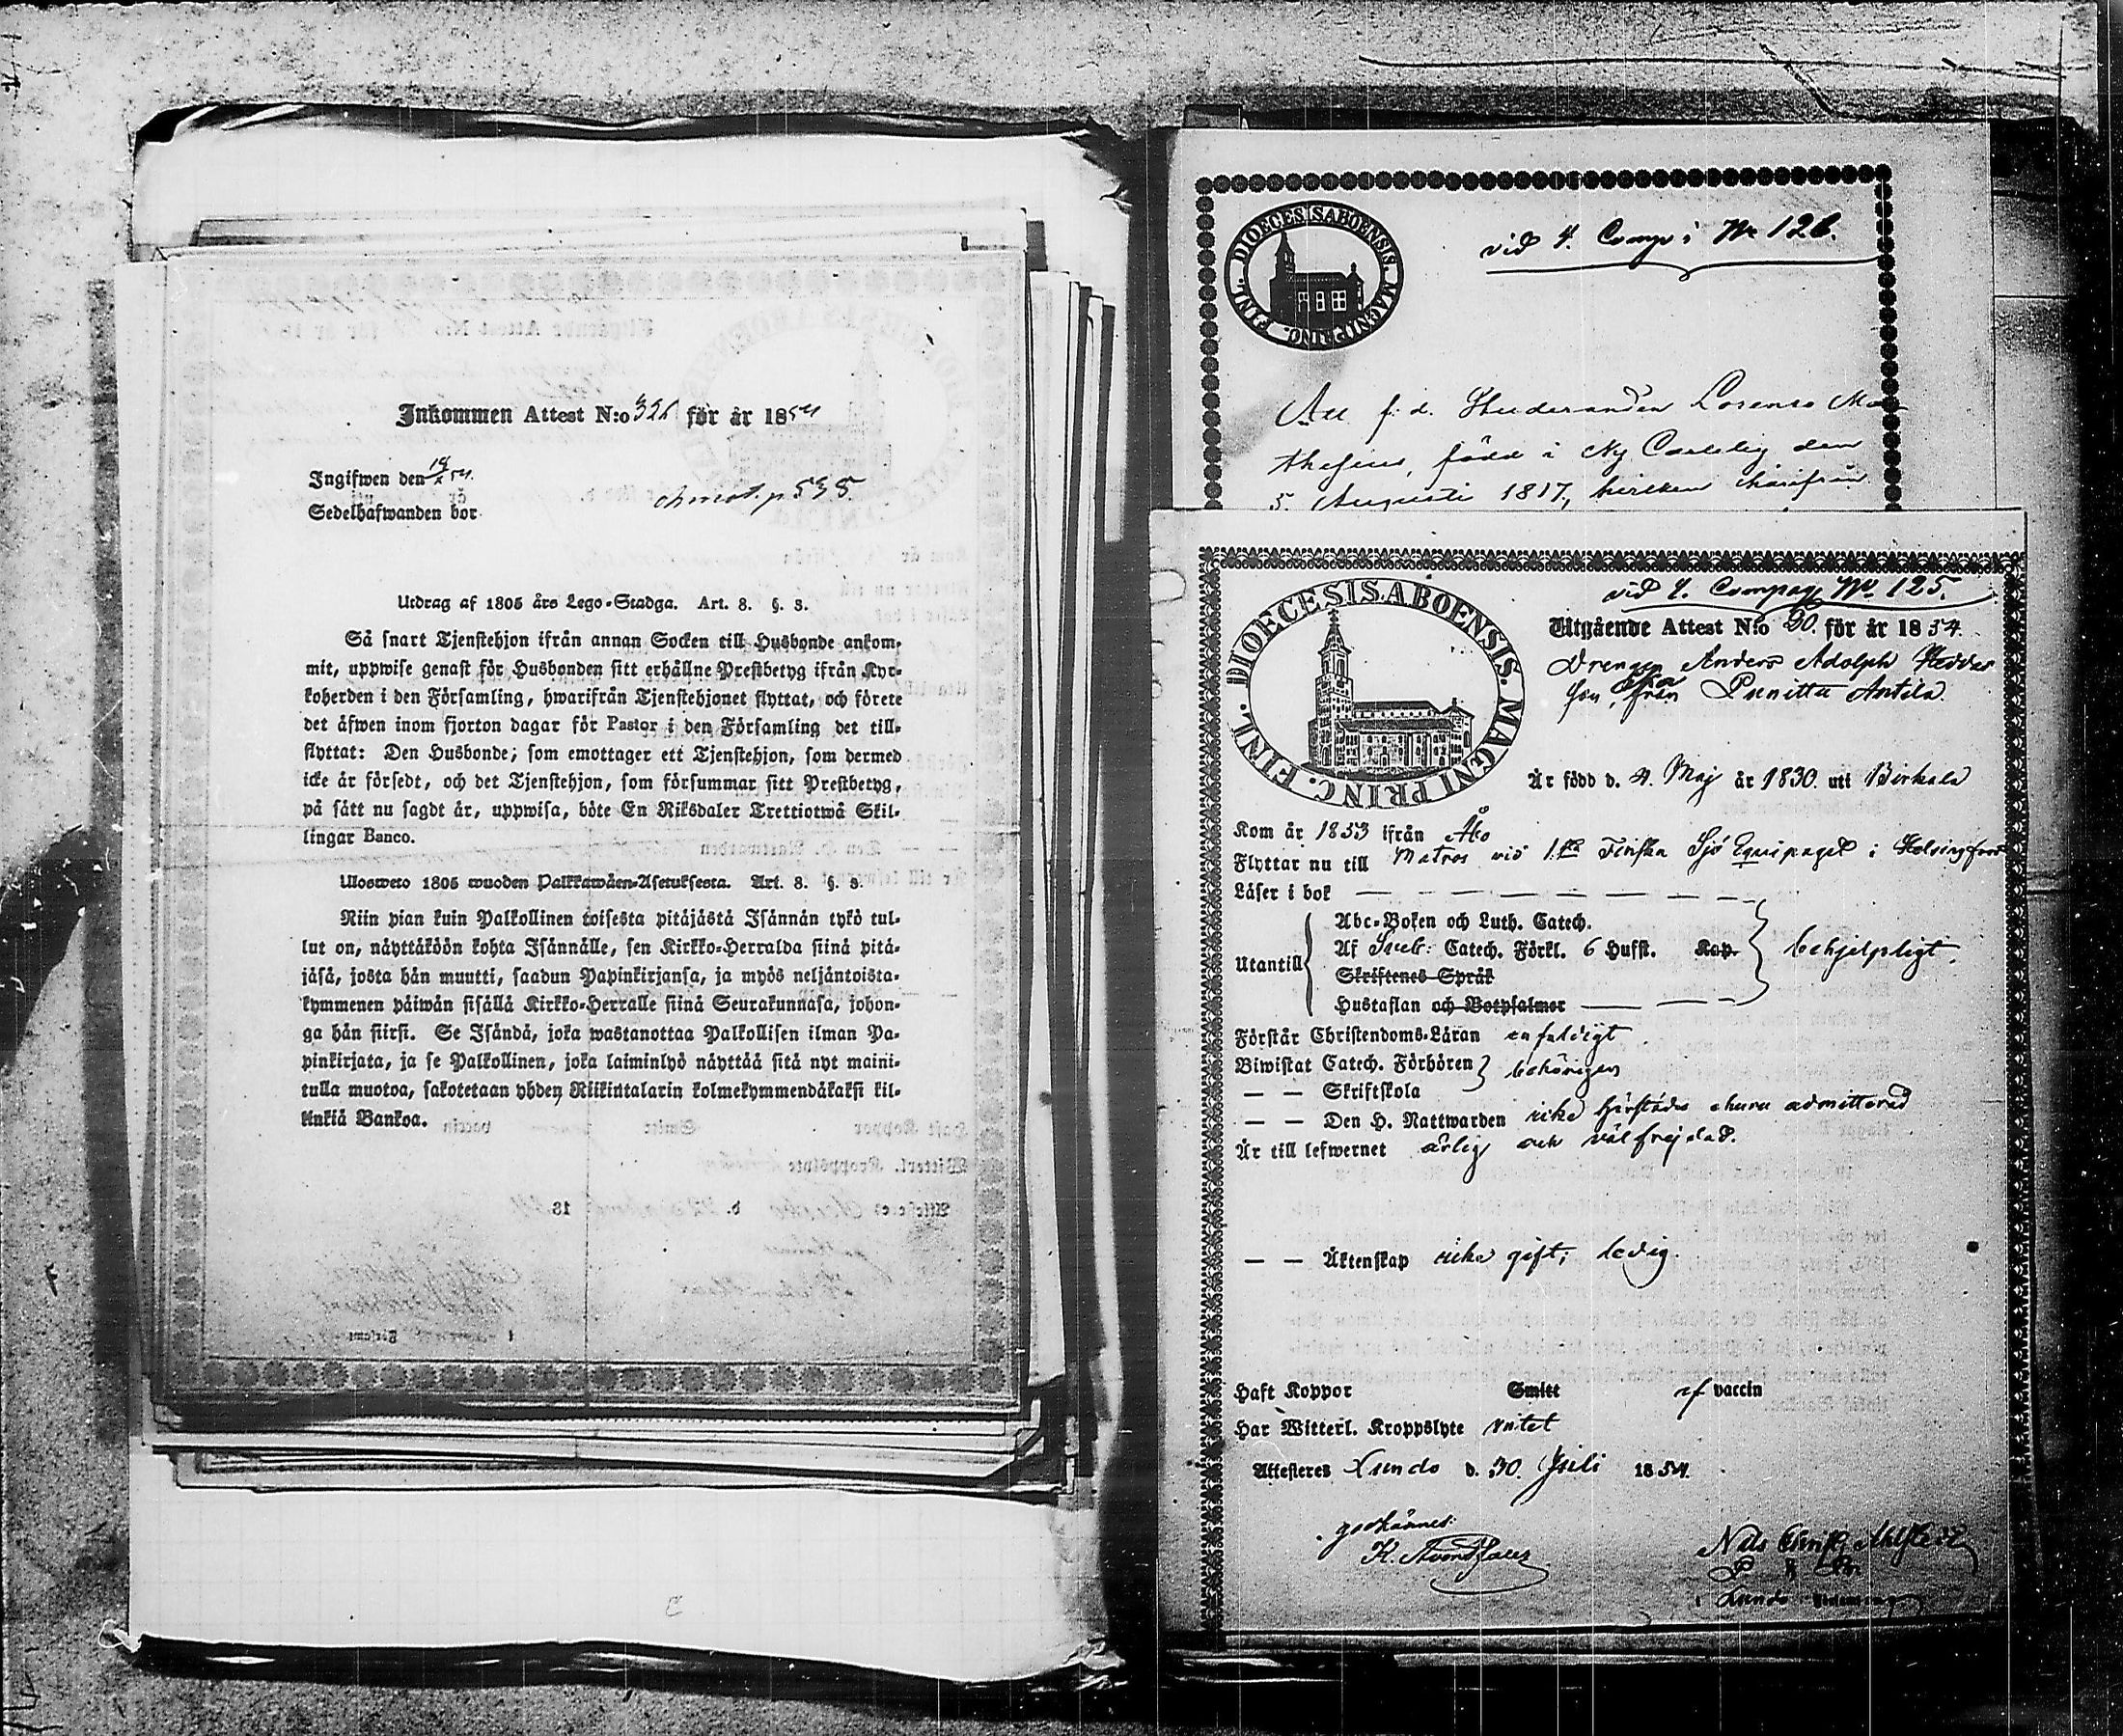 Inkommen Attest N:o 326 för år 1854
Ingifwen den 18/2 54.
Sedelhafwanden bor p. 535
Utdrag af 1805 års Lego-Stadga. Art. 8. §. 3.
Så snart Tjenstehjon ifrån annan Socken till Husbonde ankom-
mit, uppwise genast för Husbonden sitt erhållne Prestbetyg ifrån Kyr-
koherden i den Församling, hwarifrån Tjenstehjonet flyttat, och förete
det äfwen inom fjorton dagar för Pastor i den Församling det till-
flyttat: Den Husbonde; som emottager ett Tjenstehjon, som dermed
icke är försedt, och det Tjenstehjon, som försummar sitt Prestbetyg,
på sätt nu sagdt är, uppwisa, böte En Riksdaler Trettiotwå Skil-
lingar Banco.
Ulosweto 1805 wuoden Palkkawäen-Asetuksesta. Art. 8. §. 3.
Niin pian kuin Palkollinen toisesta pitäjästä Isännän tykö tul-
lut on, näyttäköön kohta Isännälle, sen Kirkko-Herralda siinä pitä-
jäsä, josta hän muutti, saadun Papinkirjansa, ja myös neljäntoista-
kymmenen päiwän sisällä Kirkko-Herralle siinä Seurakunnasa, johon-
ga hän siirsi. Se Isändä, joka wastanottaa Palkollisen ilman Pa-
pinkirjata, ja se Palkollinen, joka laiminlyö näyttää sitä nyt maini-
tulla muotoa, sakotetaan yhden Riikintalarin kolmekymmendäkaksi kil-
linkiä Bankoa.
FINL. DIOECESIS ABOENSIS. MAGNI PRINC.
vid 4. Comp: No 126.
Att f. d. Studeranden Lorenso Ma-
thesius, född i Ny Carleby den
5. Augusti 1817, hvilken härifrån
FINL. DIOECESIS ABOENSIS. MAGNI PRINC.
vid 4. Compag No. 125.
Utgående Attest N:o 30. för år 1854.
Drengen Anders Adolph
son, från Punittu Antila
Är född d. 4. Maj år 1830. uti Birkala
Kom år 1853 ifrån Åbo
Flyttar nu till Matros vid 1sta Finska Sjö Equipaget i Helsingfors
Läser i bok — — — — — —
Abc-Boken och Luth. Catech.
Utantill Af Sveb: Catech. Förkl. 6 Hufst. Kap. behjelpligt.
Skriftenes Språk
Hustaflan och Botpsalmer — — —
Förstår Christendoms-Läran enfaldigt
Biwistat Catech. Förhören behörigen
— — Skriftskola
— — Den H. Nattwarden icke härstädes ehuru admitterad
Är till lefwernet ärlig och välfrejdad.
— — Äktenskap icke gift; ledig.
Haft Koppor Smitt af vaccin
Har Witterl. Kroppslyte intet
Attesteres Lundo d. 30. Juli 1854.
godkännes:
i Lundo